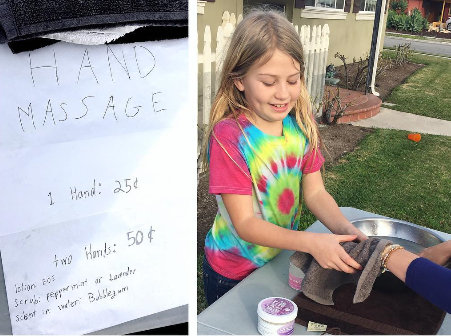 HAND
MASSAGE
1 Hand: 25¢
two Hands: 50¢
lotion: pos
Scrub: peppermint or Lavender
scent in water: Bubblegum